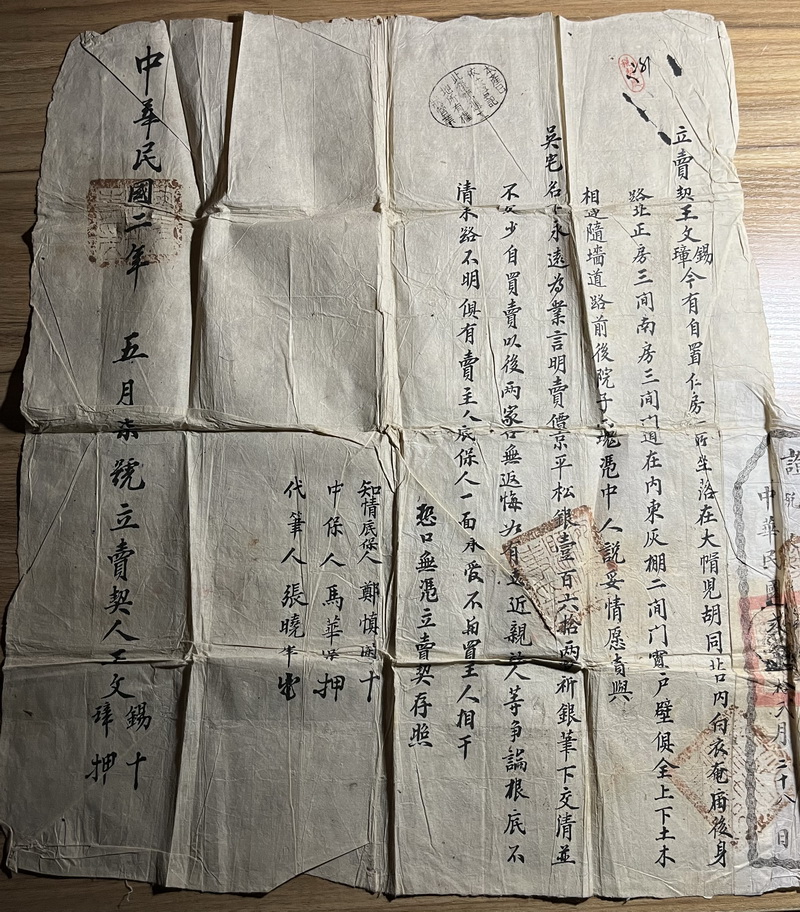 立賣契王文錫璋今有自置仁房一所坐落在大帽兒胡同北口内白衣奄廟後身
路北正房三間南房三間門道在内東灰棚二間门窗戶壁俱全上下土木
相連隨墻道路前後院子一塊憑中人說妥情愿賣與
吳宅名下永遠為業言明賣價京平松銀壹百六拾兩其折銀筆下交清並
不欠少自買賣以後兩家各無返悔如有遠近親族人等爭論根底不
清來路不明俱有賣主人底保人一面承受不與置主人相干
恐口無憑立賣契存照
知情底保人 鄭慎 十
中保人 馬華 押
代筆人 張曉 押
中華民國二年 五月柒號立賣契人王文錫十璋押
中華民
元月二十八日